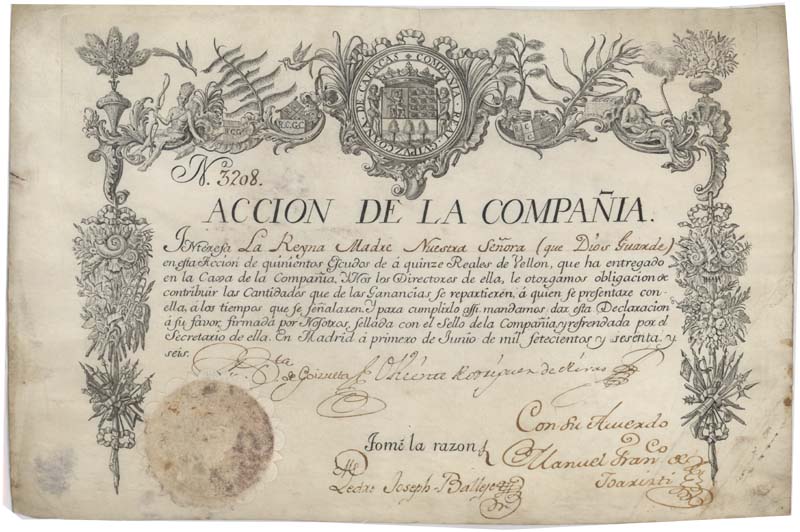 REAL COMPAÑIA GUIPUZCOANA DE CARACAS
R.C.G.
R.C.G.C
N. 3208.
ACCION DE LA COMPAÑIA.
INteresa La Reyna Madre Nuestra Señora (que Dios Guarde)
en esta Accion de quinientos Escudos de á quinze Reales de Vellon, que ha entregado
en la Caxa de la Compañia. Y Nos los Directores de ella, le otorgamos obligacion de
contribuir las Cantidades que de las Ganancias, se repartieren, á quien se presentare con
ella, a los tiempos que se señalaren. Y para cumplirlo assi mandamos dar esta Declaracion
á su favor, firmada por Nosotros, sellada con el Sello de la Compañia y refrendada por el
Secretario de ella. En Madrid á primero de Junio de mil setecientos y sesenta, y
seis.
Ju. Bta. de Goizueta Vicente Rodriguez de Rivas
Con su Acuerdo
Tomè la razon
Manuel Fran.co de
Pedro Joseph Ballejo